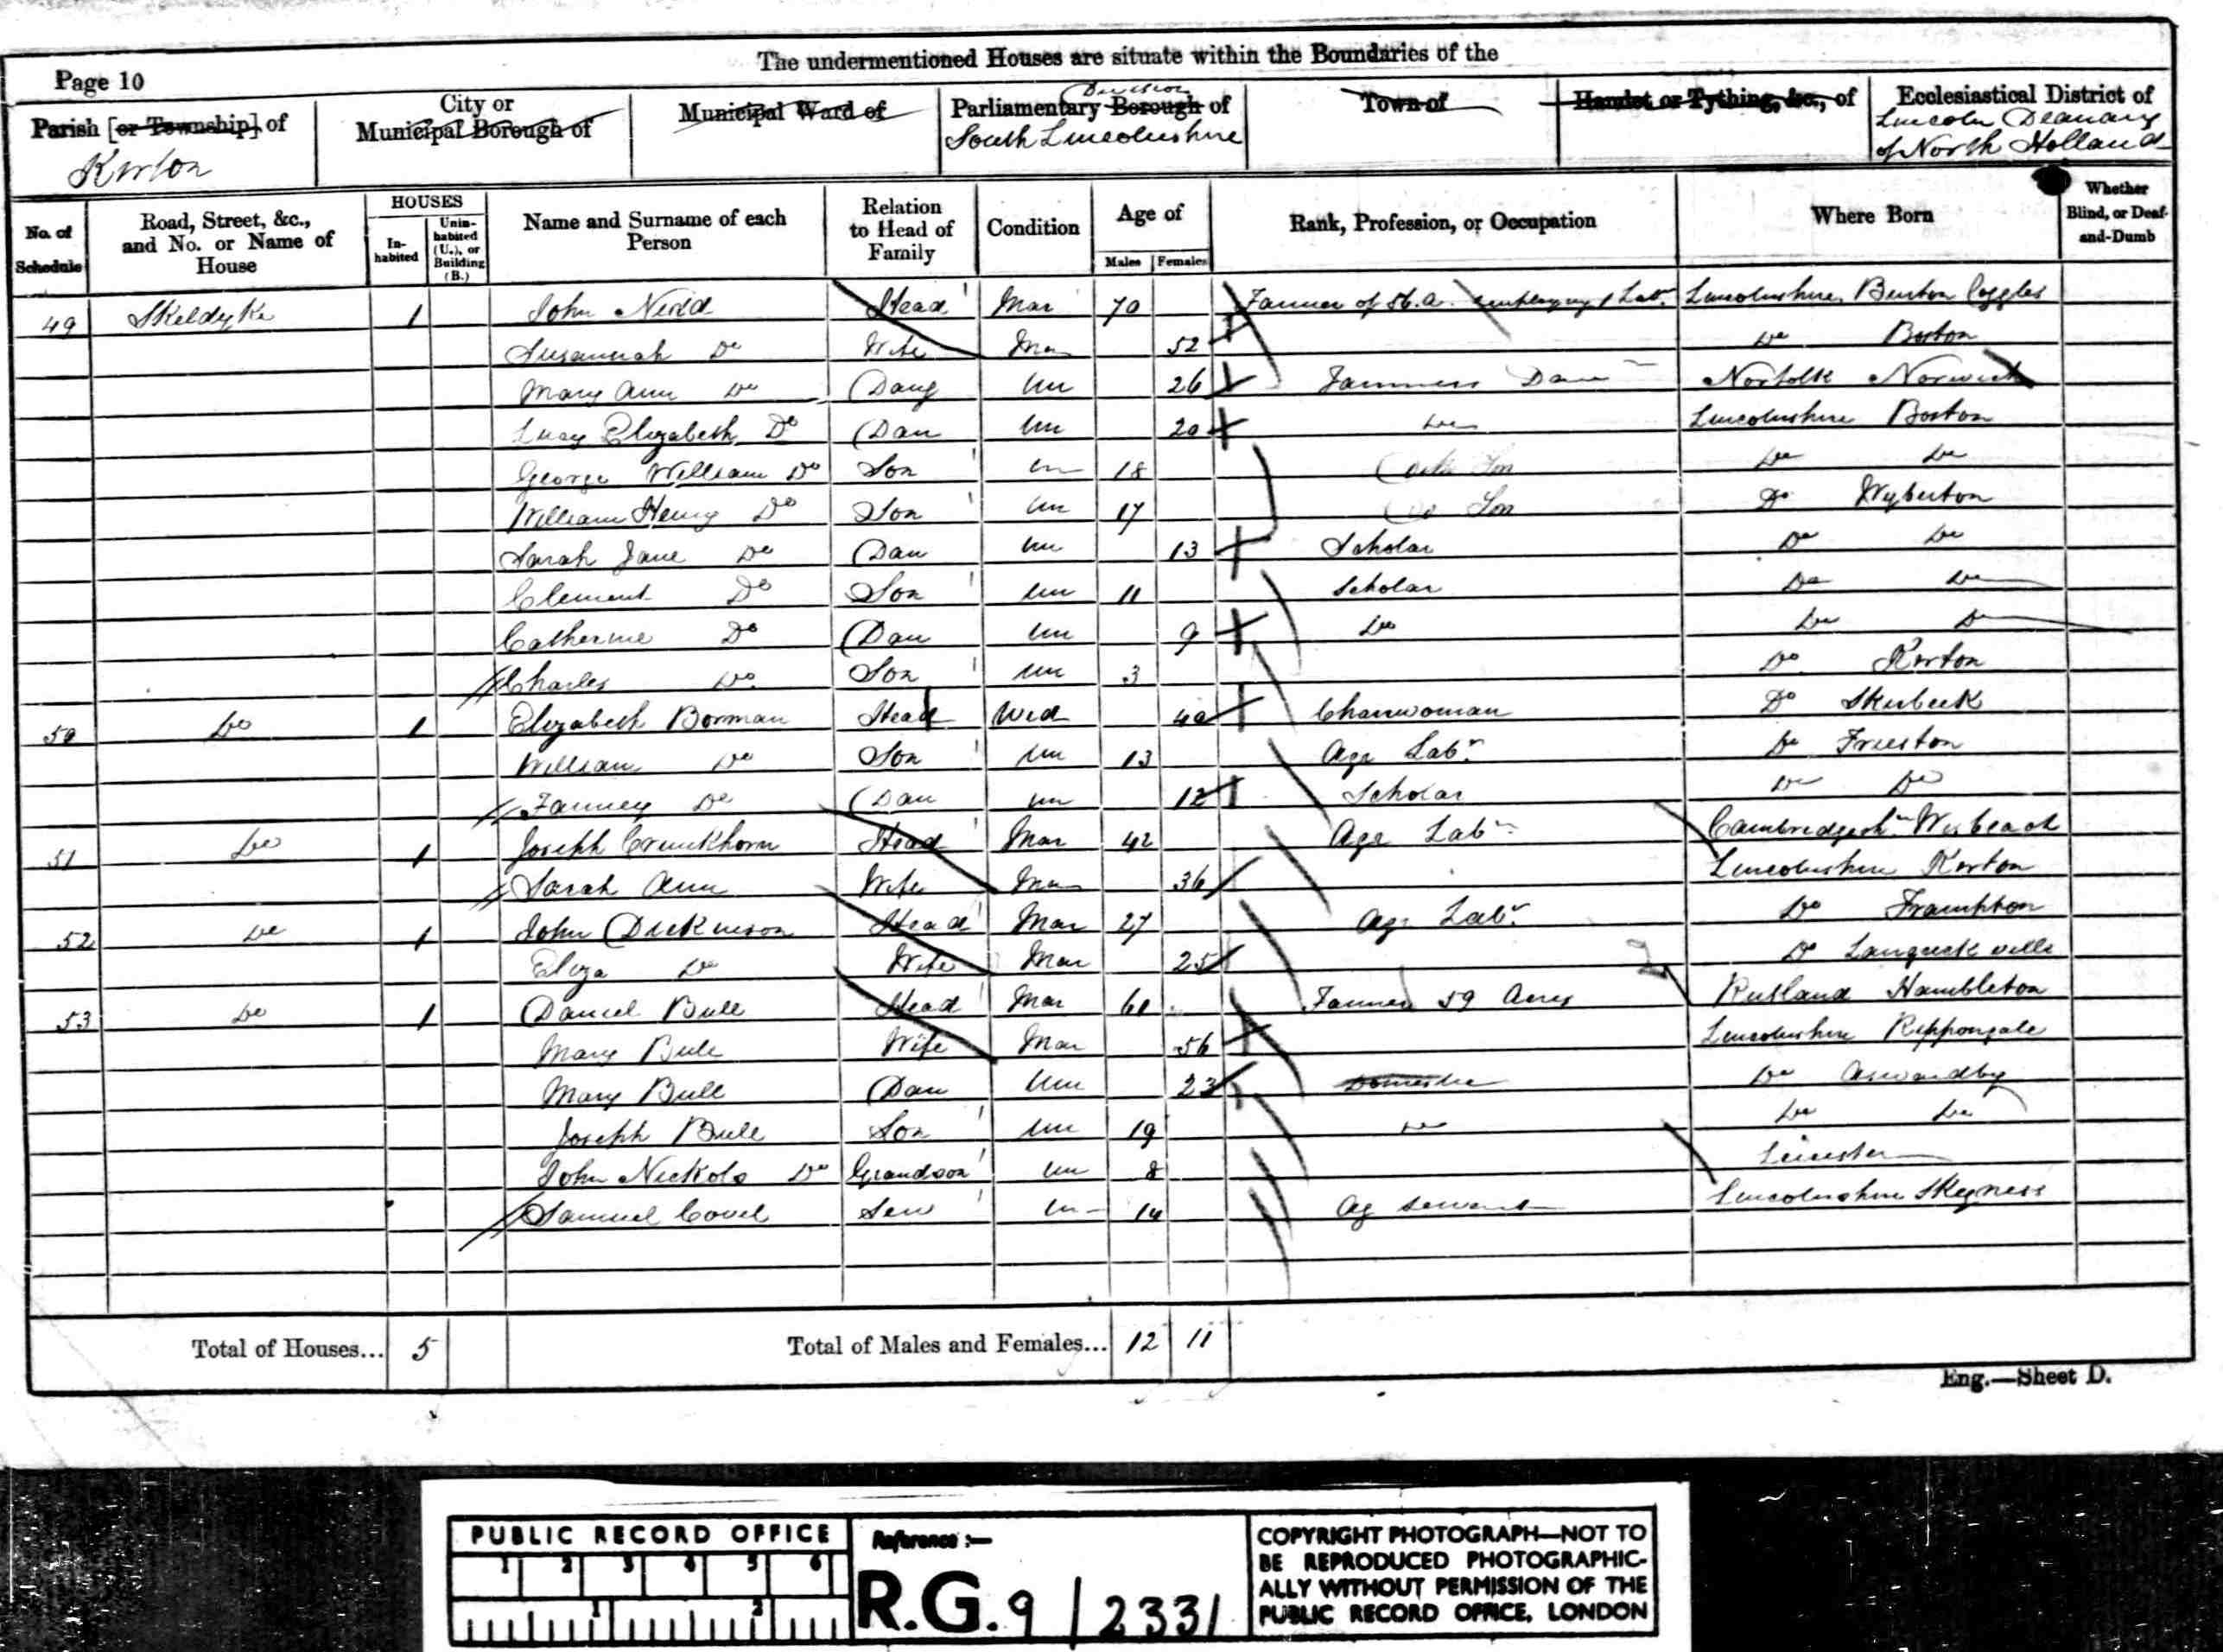 The undermentioned Houses are situate within the Boundaries of the
Page 10
Parish [or Township] of Kirton
City or Municipal Borough of
Municipal Ward of
Parliamentary Borough Division of South Lincolnshire
Town of
Hamlet or Tything, &c., of
Ecclesiastical District of Lincoln Deanary of North Holland
No. of Schedule
Road, Street, &c., and No. or Name of House
HOUSES
In-habited
Unin-habited (U.), or Building (B.)
Name and Surname of each Person
Relation to Head of Family
Condition
Age of
Males
Females
Rank, Profession, or Occupation
Where Born
Whether Blind, or Deaf-and-Dumb
49 Skeldyke 1 John Head Mar 70 Farmer of employing 1 Labr Lincolnshire Burton Coggles
Susannah Do Wife Mar 52 Do Boston
Mary Ann Do Daug Un 26 Farmers Dau Norfolk Norwich
Lucy Elizabeth Do Dau Un 20 Do Lincolnshire Boston
George William Do Son Un 18 Son Do Do
William Henry Do Son Un 17 Do Son Do Wyberton
Sarah Jane Do Dau Un 13 Scholar Do Do
Clement Do Son Un 11 Scholar Do Do
Catherine Do Dau Un 9 Do Do Do
Charles Do Son Un 3 Do Kirton
50 Do 1 Elizabeth Borman Head Wid 40 Charwoman Do Skirbeck
William Do Son Un 13 Agr Labr Do Frieston
Fanney Do Dau Un 12 Scholar Do Do
51 Do 1 Joseph Crunkhorn Head Mar 42 Agr Labr Cambridgesh Wisbeach
Sarah Ann Wife Mar 36 Lincolnshire Kirton
52 Do 1 John Dickinson Head Mar 27 Agr Labr Do Frampton
Eliza Do Wife Mar 25 Do
53 Do 1 Daniel Bull Head Mar 61 Farmer 59 Acres Rutland Hambleton
Mary Bull Wife Mar 56 Lincolnshire Rippongale
Mary Bull Dau Un 23 Domestic Do
Joseph Bull Son Un 19 Do Do Do
John Nickols Do Grandson Un 8 Leicester
Samuel Covel Serv Un 14 Ag Servant Lincolnshire Skegness
Total of Houses... 5
Total of Males and Females... 12 11
Eng.—Sheet D.
PUBLIC RECORD OFFICE
1 2 3 4 5 6
1 2
Reference :—
R.G. 9 / 2331
COPYRIGHT PHOTOGRAPH—NOT TO
BE REPRODUCED PHOTOGRAPHIC-
ALLY WITHOUT PERMISSION OF THE
PUBLIC RECORD OFFICE, LONDON